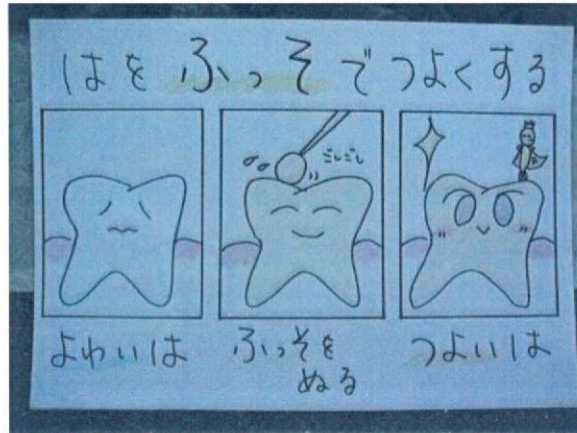 はをふっそでつよくする
ごしごし
よわいは
ふっそを
ぬる
つよいは